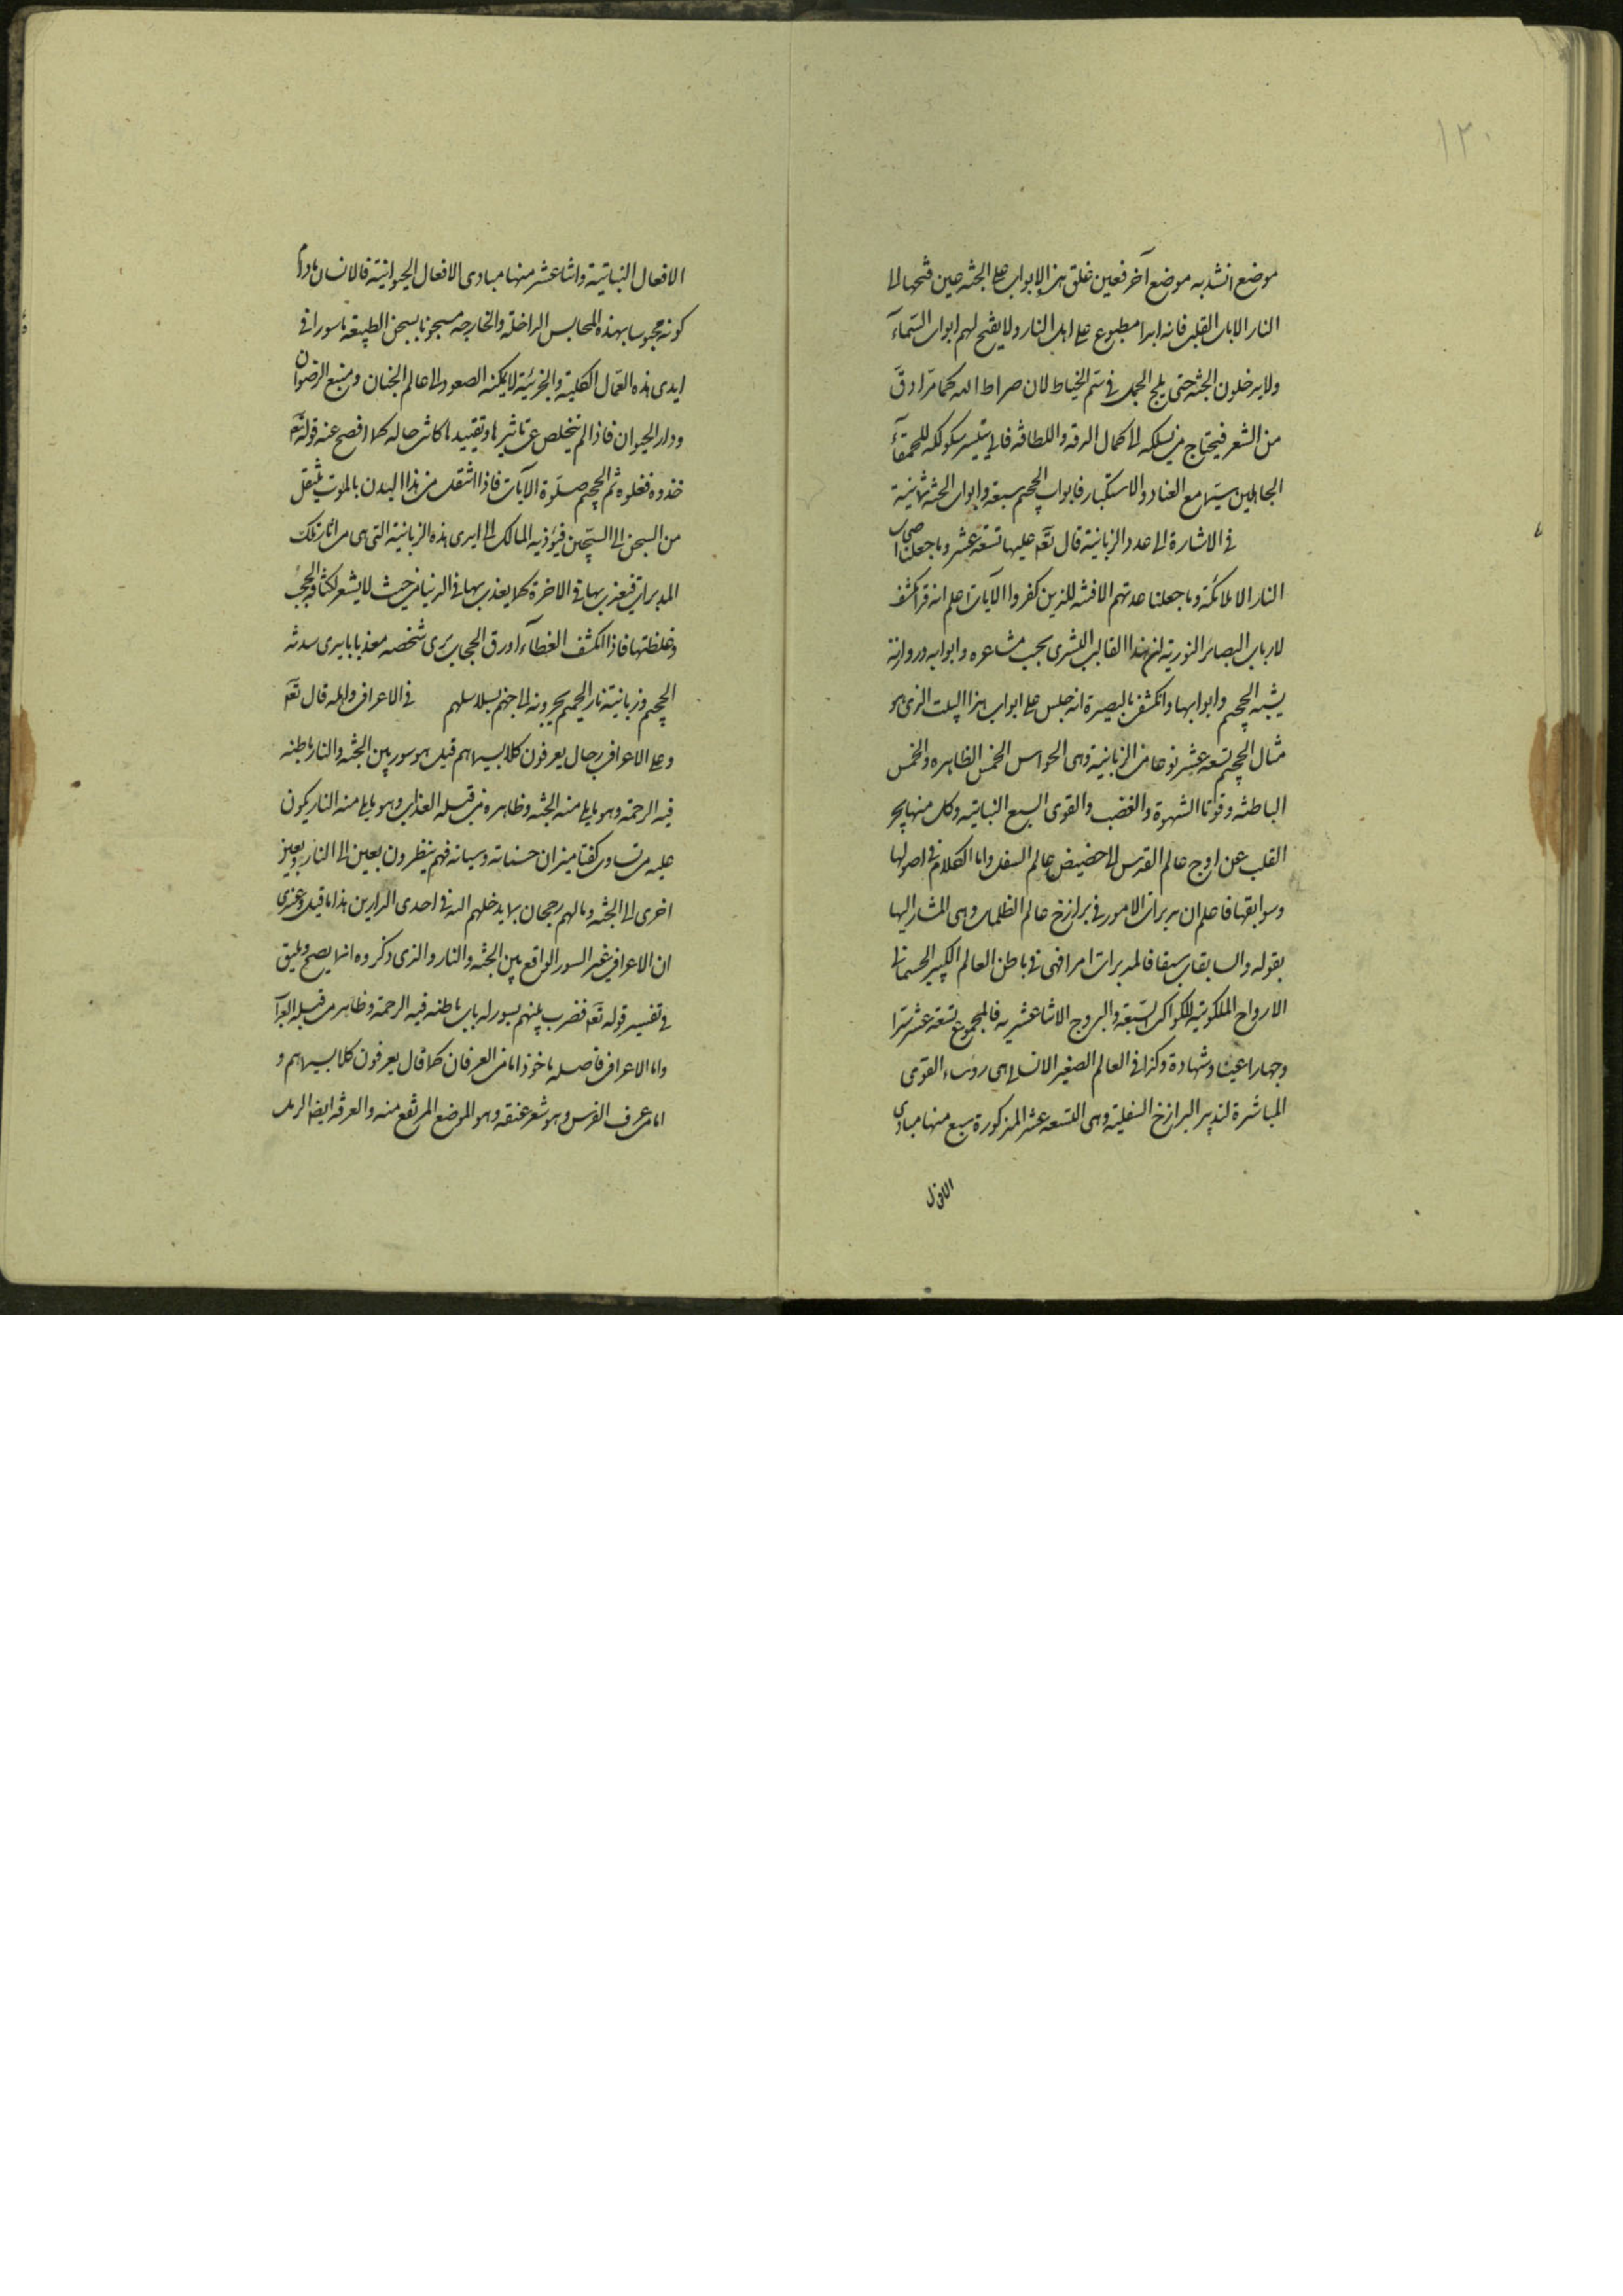 ١٣٠
موضع انسد به موضع آخر فعين غلق هذه الابواب على الجنة عين فتحها الى
النار الا باب القلب فانه ابدا مطبوع على اهل النار ولا يفتح لهم ابواب السمآء
ولا يدخلون الجنة حتى يلج الجمل فى سم الخياط لان صراط الله كما مرّ ادقّ
من الشعر فيحتاج من يسلكه الى كمال الرقة واللطافة فانى يتيسر سلوكه للحمقآء
الجاهلين سيّما مع العناد والاستكبار فابواب الجحيم سبعة وابواب الجنة ثمانية
فى الاشارة الى عدد الزبانية قال تعٓ عليها تسعة عشر وما جعلنا اصحاب
النار الا ملائكة وما جعلنا عدتهم الا فتنة للذين كفروا الآيات اعلم انه قد انكشف
لارباب البصائر النورية ان هذا القالب البشرى بحسب مشاعره وابوابه وروازنه
يشبه الجحيم وابوابها وانكشف بالبصيرة انه جلس على ابواب هذا البيت الذى هو
مثال الجحيم تسعة عشر نوعا من الزبانية وهى الحواس الخمس الظاهرة والخمس
الباطنة وقوتا الشهوة والغضب والقوى السبع النباتية وكل منها يجر
القلب عن اوج عالم القدس الى حضيض عالم السفل واما الكلام فى اصولها
وسوابقها فاعلم ان مدبرات الامور فى برازخ عالم الظلمات وهى المشار اليها
بقوله والسابقات سبقا فالمدبرات امرا فهى فى باطن العالم الكبير الجسمانى
الارواح الملكوتية للكواكب السبعة والبروج الاثنا عشرية فالمجموع تسعة عشر سرّا
وجهارا غيبا وشهادة وكذا فى العالم الصغير الانسانى هى رؤساء القوى
المباشرة لتدبير البرازخ السفلية وهى التسعة عشر المذكورة سبع منها مبادى
الافعال
الافعال النباتية واثنا عشر منها مبادى الافعال الحيوانية فالانسان مادام
كونه محبوسا بهذه المحابس الداخلة والخارجة مسجونا بسجن الطبيعة ماسورا فى
ايدى هذه العمّال الكلية والجزئية لا يمكنه الصعود الى عالم الجنان ومنبع الرضوان
ودار الحيوان فاذا لم يتخلص عن تاثيرها وتقييدها كانت حاله كما افصح عنه قوله تعٓ
خذوه فغلوه ثم الجحيم صلّوه الآيات فاذا انتقل من هذا البدن بالموت ينتقل
من السجن الى السجّين فيؤذيه المالك الى ايدى هذه الزبانية التى هى من اثار تلك
المدبرات فيعذب بها فى الاخرة كما يعذب بها فى الدنيا من حيث لا يشعر لكثافة الحجب
وغلظتها فاذا انكشف الغطآء ورق الحجاب يرى شخصه معذبا بايدى سدنة
الجحيم وزبانية نار الحميم يجرونه الى جهنم بسلاسلهم فى الاعراف واهله قال تعٓ
وعلى الاعراف رجال يعرفون كلا بسيماهم قيل هو سور بين الجنة والنار باطنه
فيه الرحمة وهو ما يلى منه الجنة وظاهره من قبله العذاب وهو ما يلى منه النار يكون
عليه من تساوى كفتا ميزان حسناته وسيئاته فهم ينظرون بعين الى النار وبعين
اخرى الى الجنة وما لهم رجحان بما يدخلهم الله فى احدى الدارين هذا ما قيل وعندى
ان الاعراف غير السور الواقع بين الجنة والنار والذى ذكروه انما يصح ويليق
فى تفسير قوله تعٓ فضرب بينهم بسور له باب باطنه فيه الرحمة وظاهره من قبله العذاب
واما الاعراف فاصله ماخوذ اما من العرفان كما قال يعرفون كلا بسيماهم و
اما من عرف الفرس وهو شعر عنقه وهو الموضع المرتفع منه والعرفة ايضا الرمل